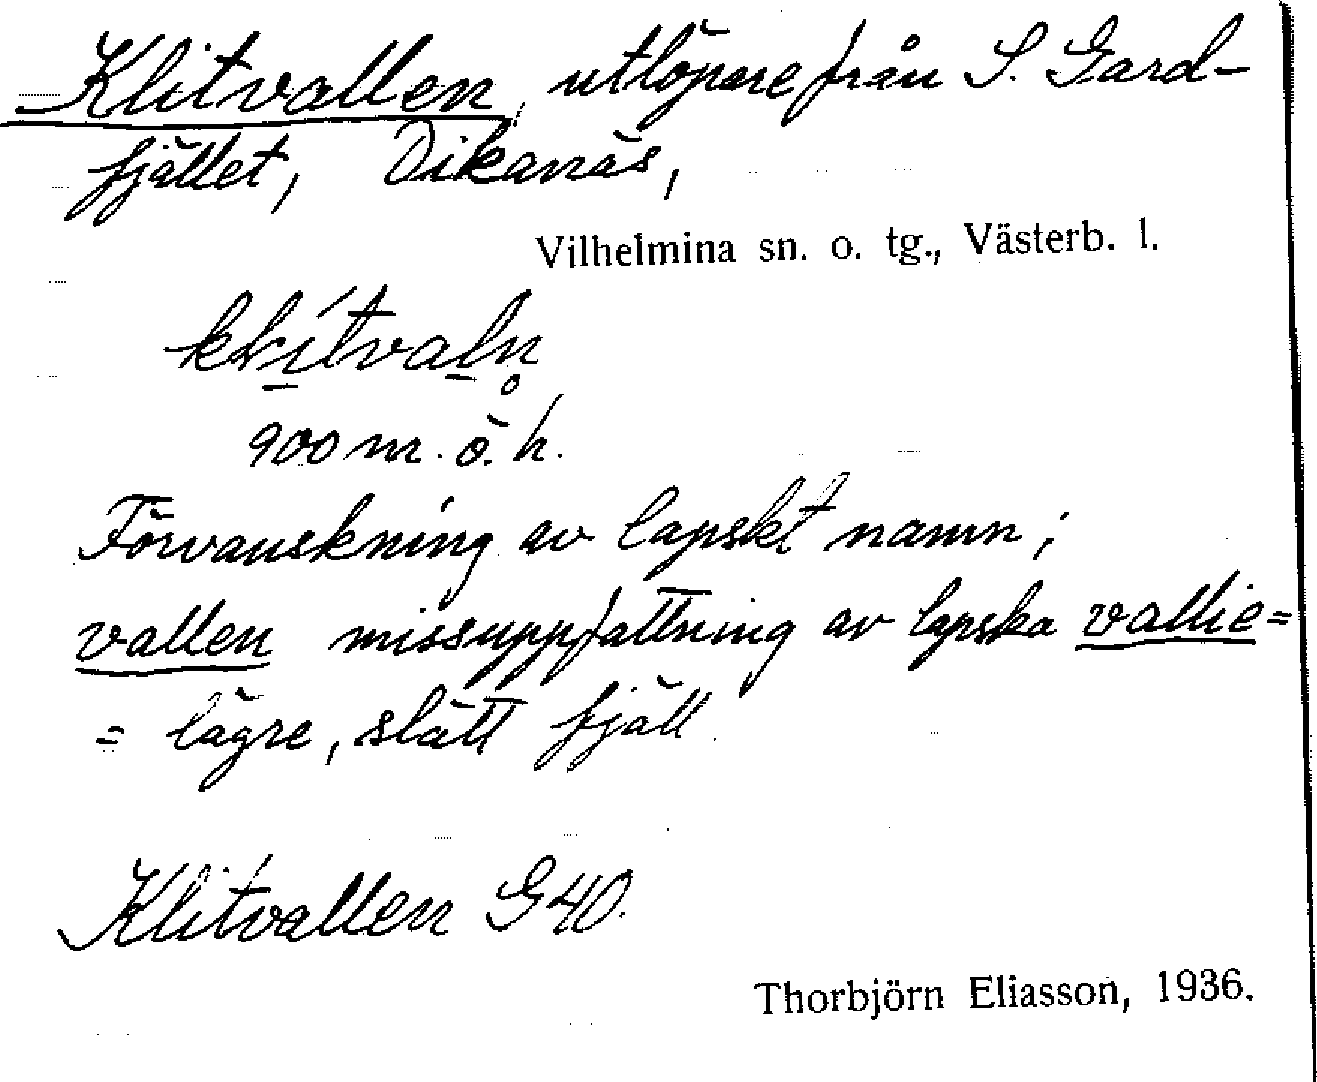 Klitvallen, utlöpare från S. Gard-
fjället, Dikanäs,
Vilhelmina sn. o. tg., Västerb. l.
900 m. ö. h.
Förvanskning av lapskt namn;
vallen missuppfattning av lapska vallie=
= lägre, slätt fjäll.
Klitvallen G40.
Thorbjörn Eliasson, 1936.